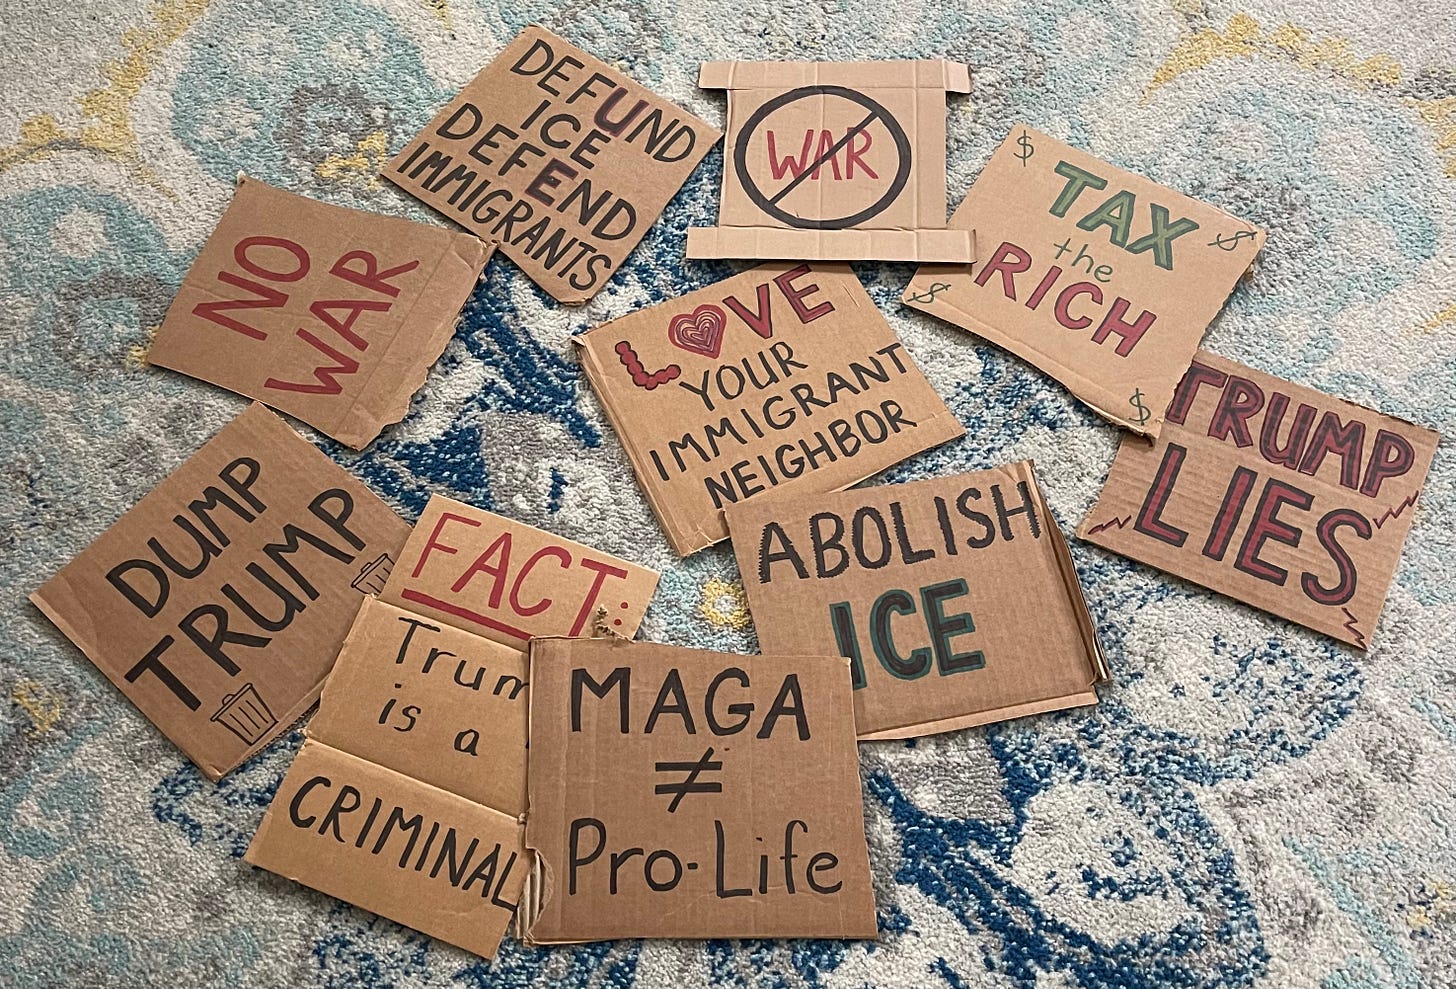 DEFUND
ICE
DEFEND
IMMIGRANTS
WAR
$
TAX
the
RICH
$
$
$
NO
WAR
LOVE
YOUR
IMMIGRANT
NEIGHBOR
TRUMP
LIES
DUMP
TRUMP
FACT:
Trum
is a
CRIMINAL
ABOLISH
ICE
MAGA
≠
Pro-Life